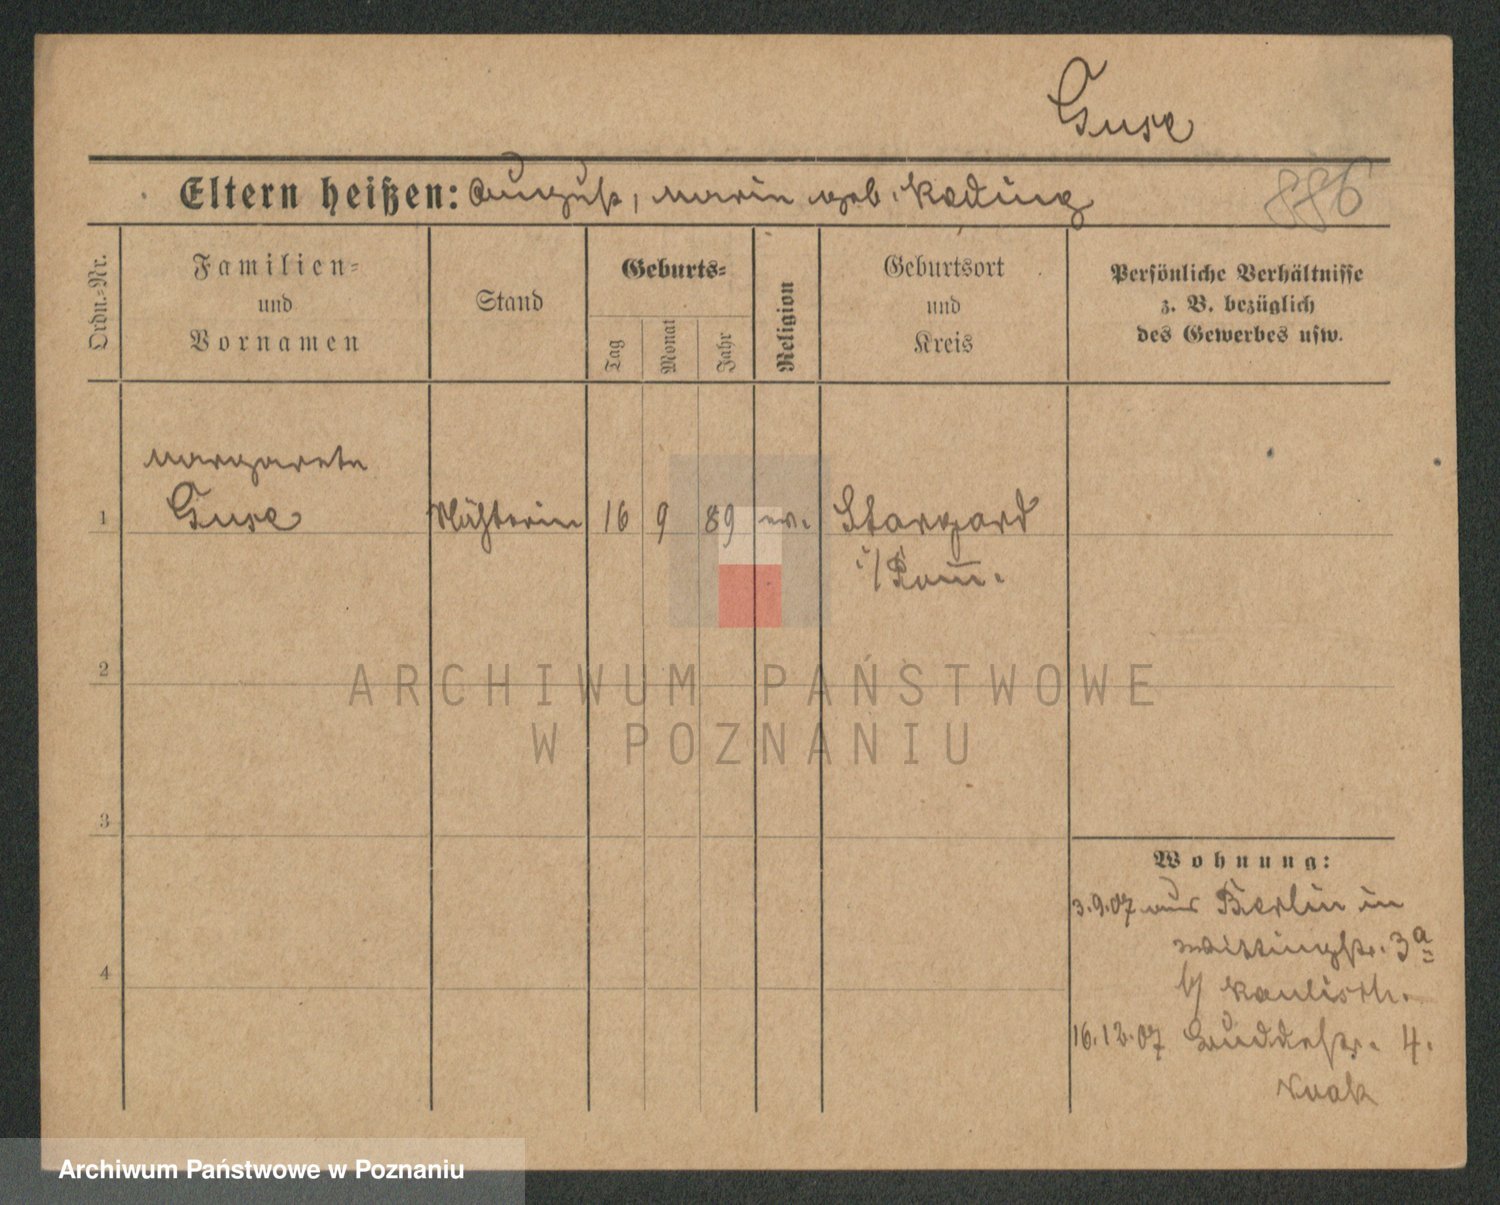 Guse
Eltern heißen: August, Marie geb. Kading
886
Ordn.=Nr.
Familien=
und
Vornamen
Stand
Geburts=
Tag
Monat
Jahr
Religion
Geburtsort
und
Kreis
Persönliche Verhältnisse
z. B. bezüglich
des Gewerbes usw.
Margarete
1 Guse Nähterin 16 9 89 ev. Stargard
i/Pom̅.
2
ARCHIWUM PAŃSTWOWE
W POZNANIU
3
Wohnung:
3.9.07 aus Berlin in
3a
b/
4
16.12.07 4.
Archiwum Państwowe w Poznaniu